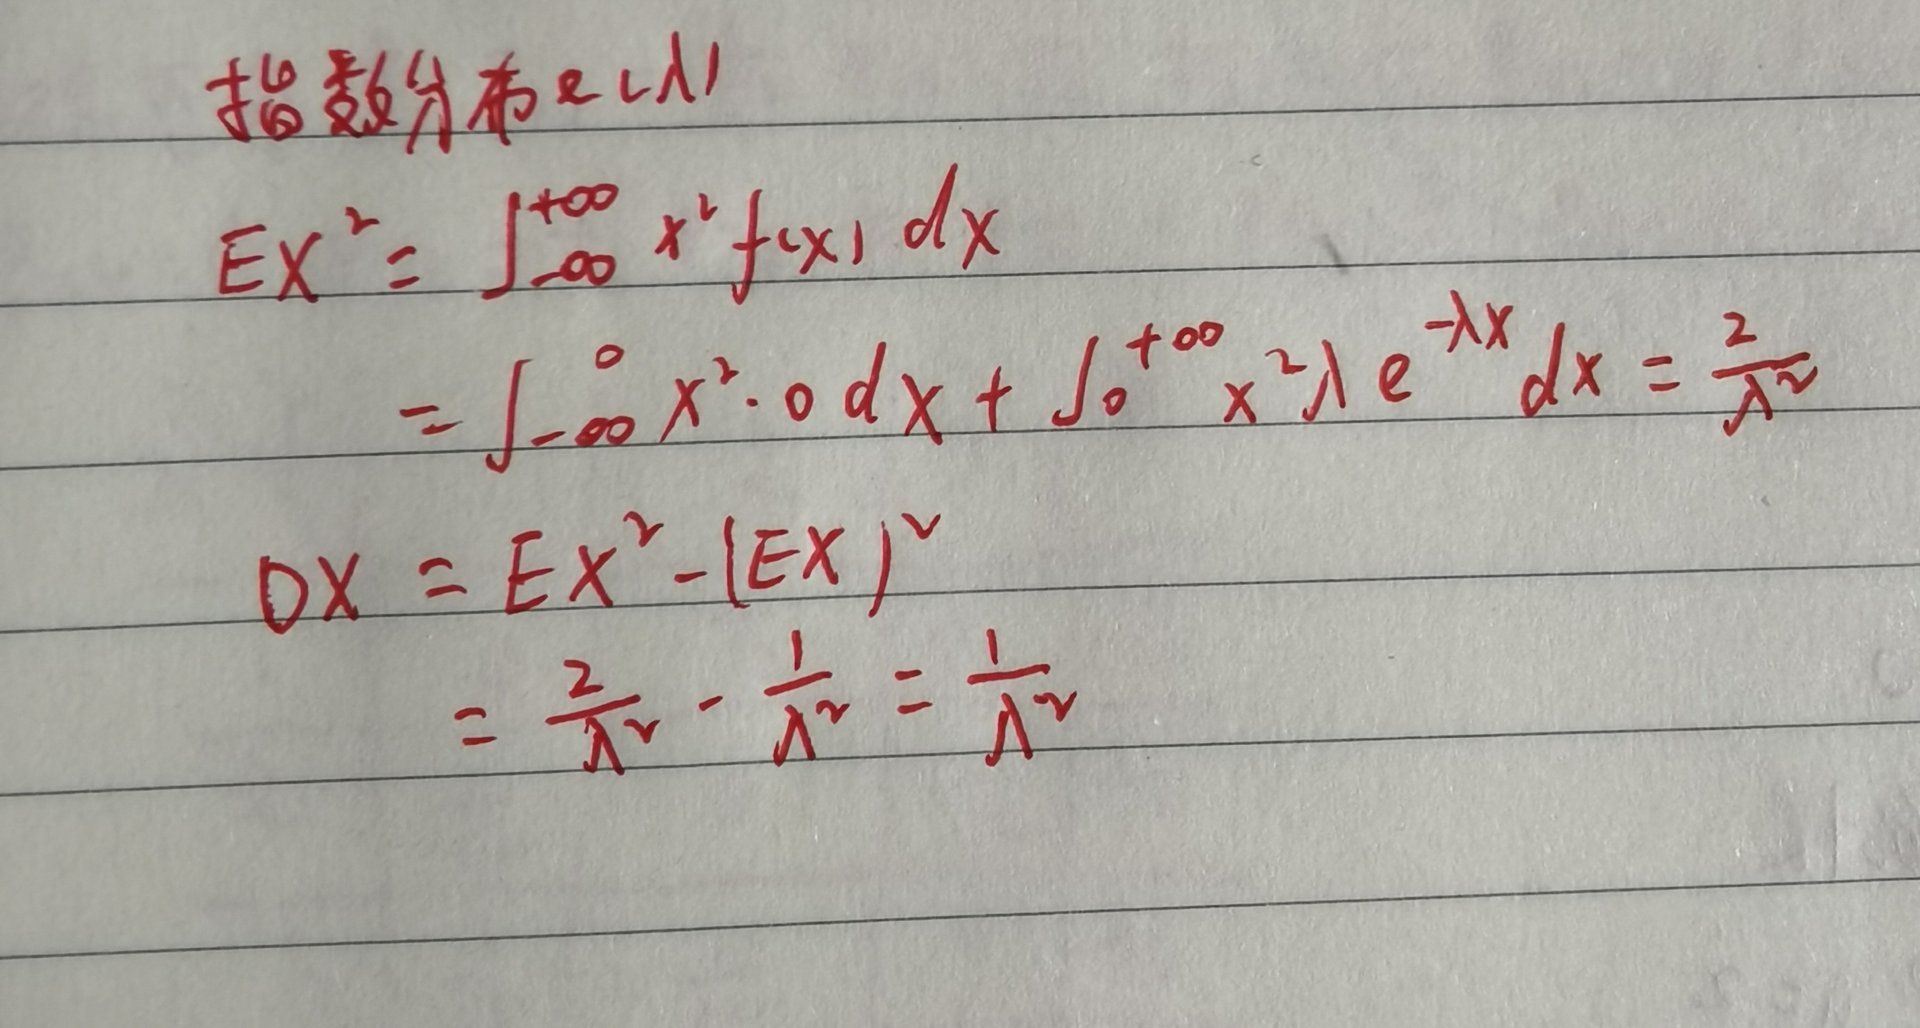 指数分布 e(λ)
EX² = ∫_{-∞}^{+∞} x² f(x) dx
= ∫_{-∞}^{0} x²·0 dx + ∫_{0}^{+∞} x² λ e^{-λx} dx = 2/λ²
DX = EX² - (EX)²
= 2/λ² - 1/λ² = 1/λ²